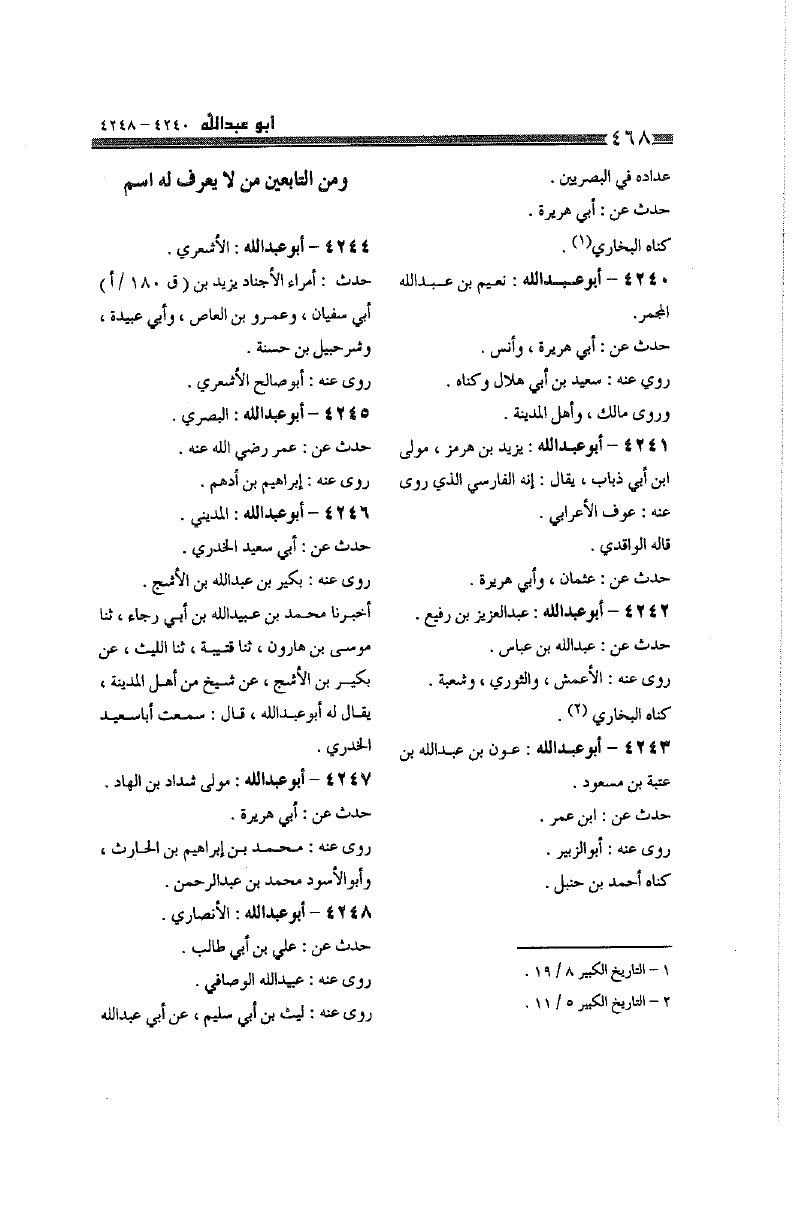 أبو عبدالله ٤٢٤٠ – ٤٢٤٨
٤٦٨
عداده في البصريين .
حدث عن : أبي هريرة .
كناه البخاري(١) .
٤٢٤٠ – أبوعبدالله : نعيم بن عبدالله
المجمر.
حدث عن : أبي هريرة ، وأنس .
روي عنه : سعيد بن أبي هلال وكناه .
وروى مالك ، وأهل المدينة .
٤٢٤١ – أبوعبدالله : يزيد بن هرمز ، مولى
ابن أبي ذباب ، يقال : إنه الفارسي الذي روى
عنه : عوف الأعرابي .
قاله الواقدي .
حدث عن : عثمان ، وأبي هريرة .
٤٢٤٢ – أبوعبدالله : عبدالعزيز بن رفيع .
حدث عن : عبدالله بن عباس .
روى عنه : الأعمش ، والثوري ، وشعبة .
كناه البخاري (٢) .
٤٢٤٣ – أبوعبدالله : عون بن عبدالله بن
عتبة بن مسعود .
حدث عن : ابن عمر .
روى عنه : أبوالزبير .
كناه أحمد بن حنبل .
١ – التاريخ الكبير ٨ / ١٩ .
٢ – التاريخ الكبير ٥ / ١١ .
ومن التابعين من لا يعرف له اسم
٤٢٤٤ – أبوعبدالله : الأشعري .
حدث : أمراء الأجناد يزيد بن ( ق ١٨٠ / أ )
أبي سفيان ، وعمرو بن العاص ، وأبي عبيدة ،
وشرحبيل بن حسنة .
روى عنه : أبوصالح الأشعري .
٤٢٤٥ – أبوعبدالله : البصري .
حدث عن : عمر رضي الله عنه .
روى عنه : إبراهيم بن أدهم .
٤٢٤٦ – أبوعبدالله : المديني .
حدث عن : أبي سعيد الخدري .
روى عنه : بكير بن عبدالله بن الأشج .
أخبرنا محمد بن عبيدالله بن أبي رجاء ، ثنا
موسى بن هارون ، ثنا قتيبة ، ثنا الليث ، عن
بكير بن الأشج ، عن شيخ من أهل المدينة ،
يقال له أبوعبدالله ، قال : سمعت أباسعيد
الخدري .
٤٢٤٧ – أبوعبدالله : مولى شداد بن الهاد .
حدث عن : أبي هريرة .
روى عنه : محمد بن إبراهيم بن الحارث ،
وأبوالأسود محمد بن عبدالرحمن .
٤٢٤٨ – أبوعبدالله : الأنصاري .
حدث عن : علي بن أبي طالب .
روى عنه : عبيدالله الوصافي .
روى عنه : ليث بن أبي سليم ، عن أبي عبدالله